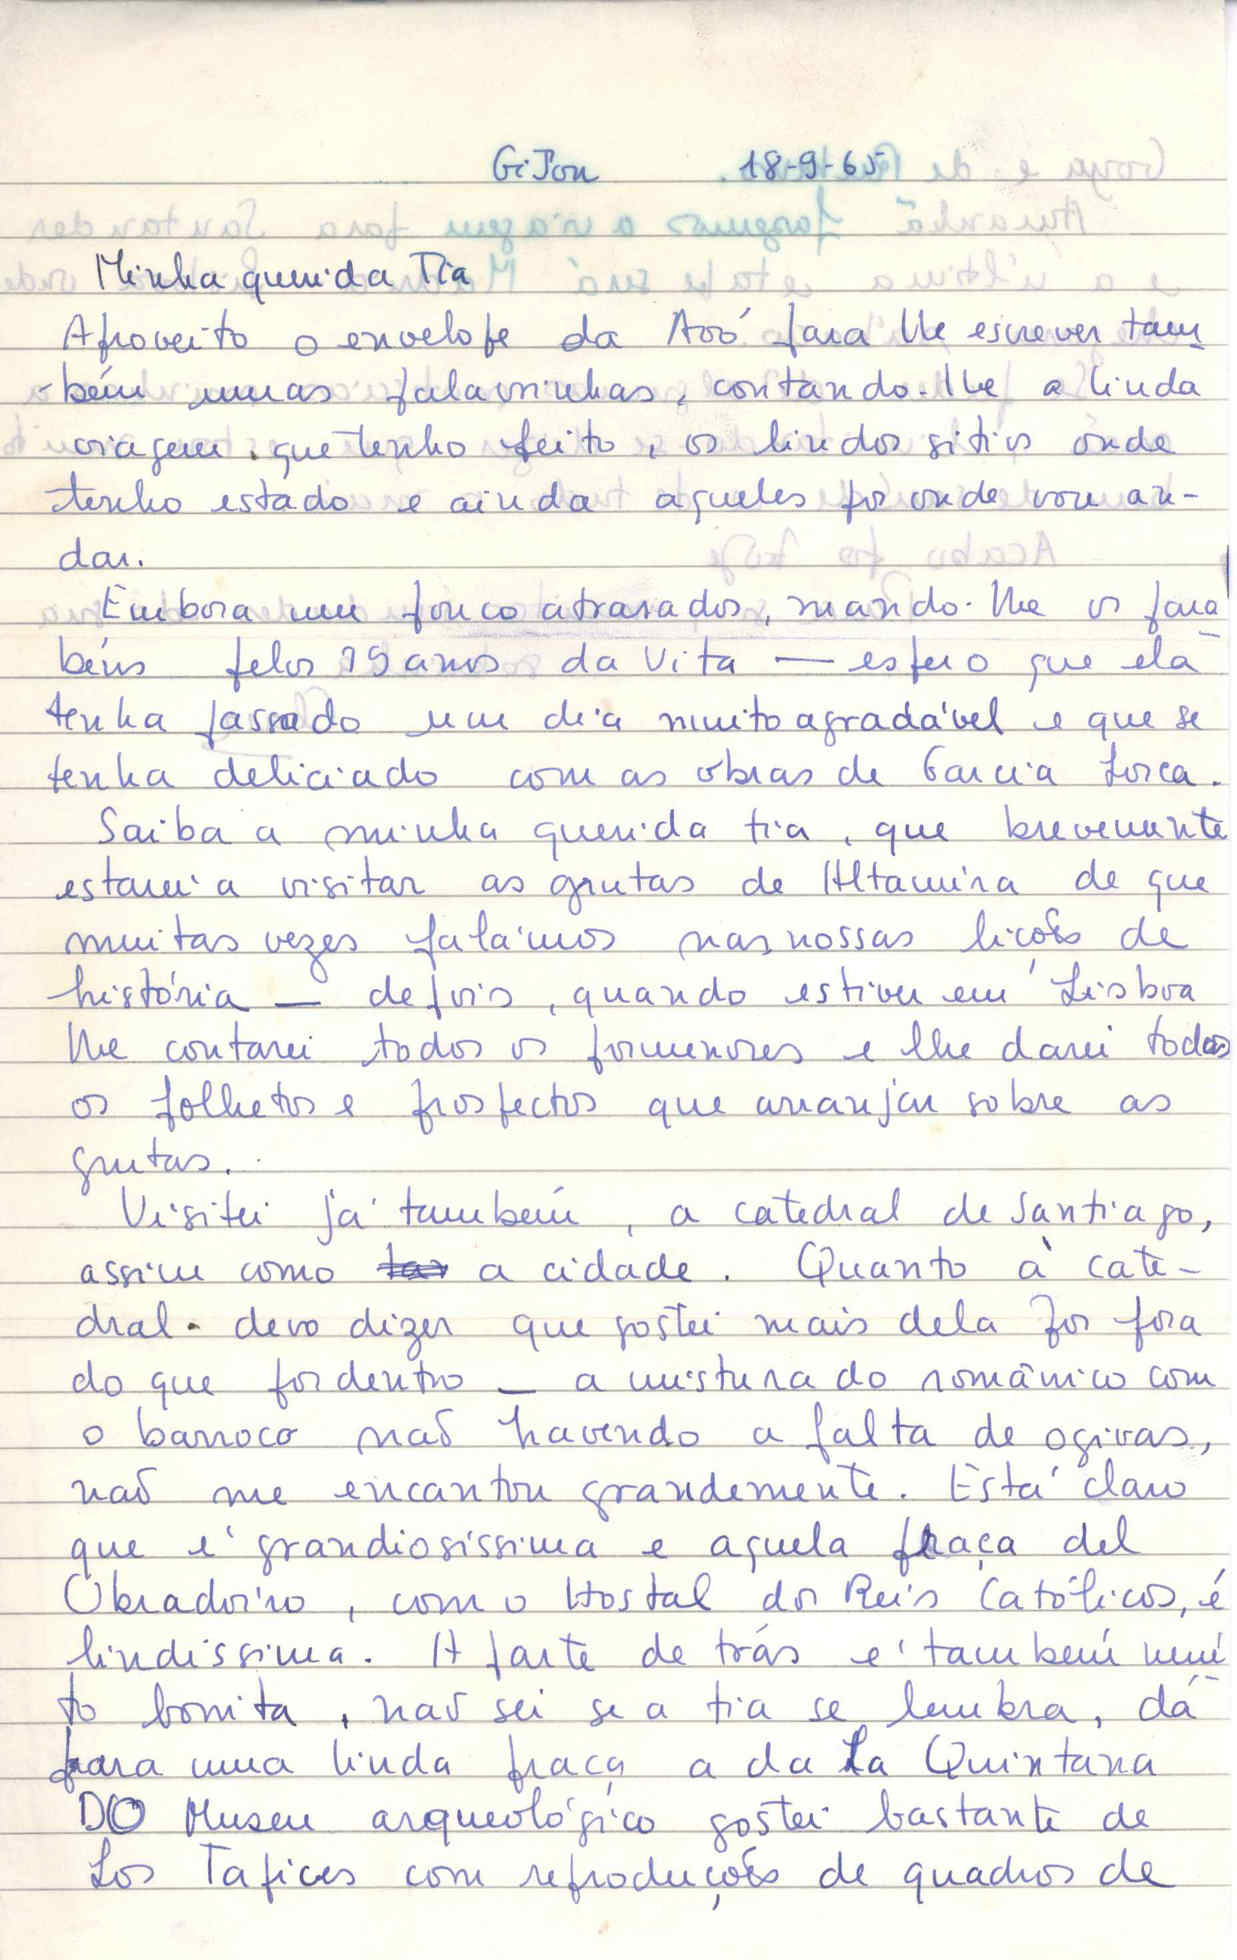 GiJon 18-9-65
Minha querida Tia
Aproveito o envelope da Avó para lhe escrever tam
-bém umas palavrinhas, contando-lhe a linda
viagem que tenho feito, os lindos sitios onde
tenho estado e ainda aqueles por onde vou an-
dar.
Embora um pouco atrasados, mando-lhe os para
béns pelos 19 anos da Vita — espero que ela
tenha passado um dia muito agradável e que se
tenha deliciado com as obras de Garcia Lorca.
Saiba a minha querida tia, que brevemente
estarei a visitar as grutas de Altamira de que
muitas vezes falámos nas nossas lições de
história — depois, quando estiver em Lisboa
lhe contarei todos os pormenores e lhe darei todos
os folhetos e prospectos que arranjar sobre as
grutas.
Visitei já também, a catedral de Santiago,
assim como a cidade. Quanto à cate-
dral. devo dizer que gostei mais dela por fora
do que por dentro — a mistura do românico com
o barroco não havendo a falta de ogivas,
não me encantou grandemente. Está claro
que é grandiosissima e aquela praça del
Obradoiro, com o Hostal dos Reis Católicos, é
lindissima. A parte de trás é também mui
to bonita, não sei se a tia se lembra, dá
para uma linda praça a da La Quintana
DO Museu arqueológico gostei bastante de
Los Tapices com reproduções de quadros de